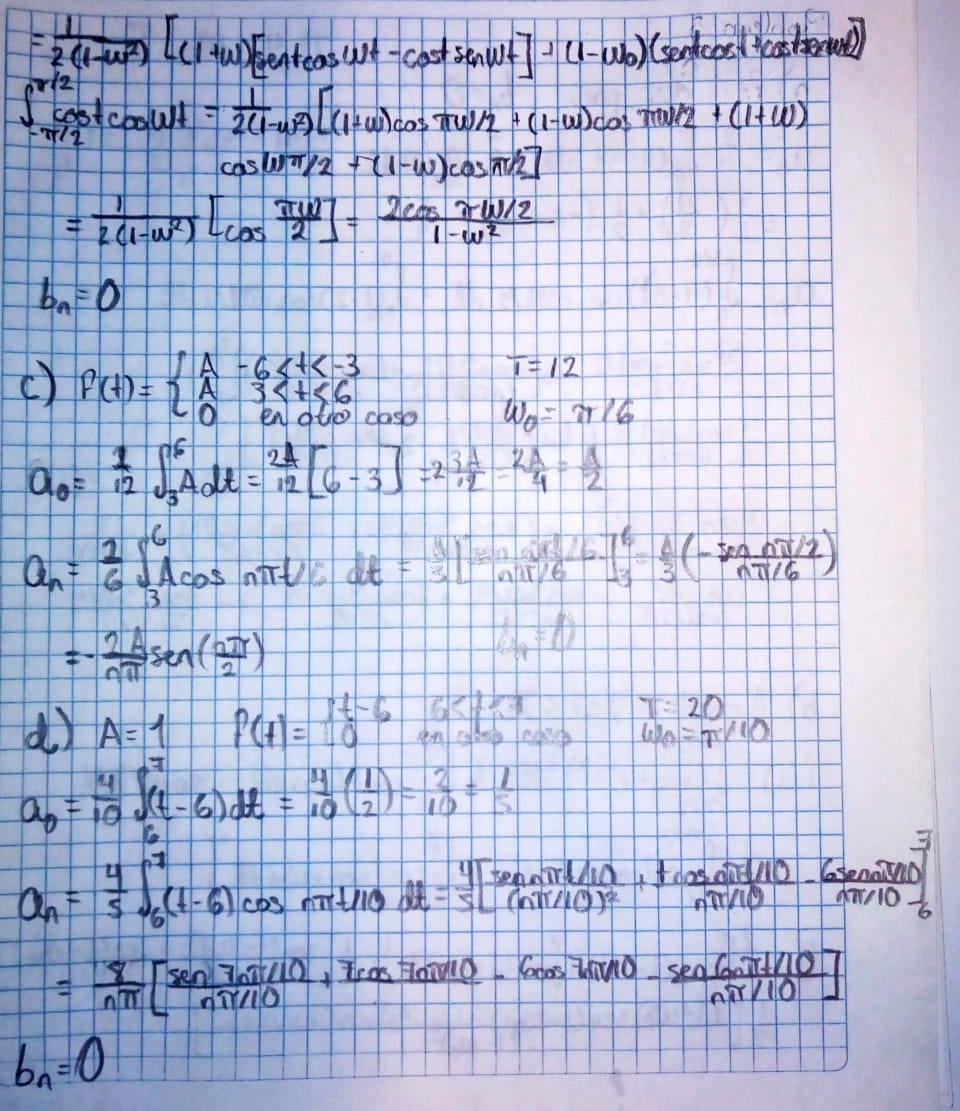 = 1/2(1-w²) [(1+w)[sentcoswt - costsenwt] + (1-w₀)(sentcost+costsenwt)]
∫_{-π/2}^{π/2} costcoswt = 1/2(1-w²) [(1+w)cos πw/2 + (1-w)cos πw/2 + (1+w)
coswπ/2 + (1-w)cosπ/2]
= 1/2(1-w²) [cos πw/2] = 2cos πw/2 / 1-w²
bₙ=0
c) P(t) = { A -6<t<-3 T=12
A 3<t≤6
0 en otro caso w₀= π/6
a₀= 2/12 ∫₃⁶ Adt = 2A/12 [6-3] =2 3A/12 = 2A/4 = A/2
aₙ = 2/6 ∫₃⁶ Acos nπt/6 dt = A/3 [sen nπt/6 / nπ/6]₃⁶ = A/3 (-sen nπ/2 / nπ/6)
=- 2A/nπ sen(nπ/2) bₙ=0
d) A=1 P(t) = { t-6 6<t<7 T=20
0 en otro caso w₀=π/10
a₀ = 4/10 ∫₆⁷ (t-6)dt = 4/10 (1/2) = 2/10 = 1/5
aₙ = 4/5 ∫₆⁷ (t-6) cos nπt/10 dt = 4/5 [sennπt/10 / (nπ/10)² + tcosnπt/10 / nπ/10 - 6sennπt/10 / nπ/10]₆⁷
= 8/nπ [sen 7nπ/10 / nπ/10 + 7cos 7nπ/10 - 6cos 7nπ/10 - sen 6nπt/10 / nπ/10]
bₙ=0